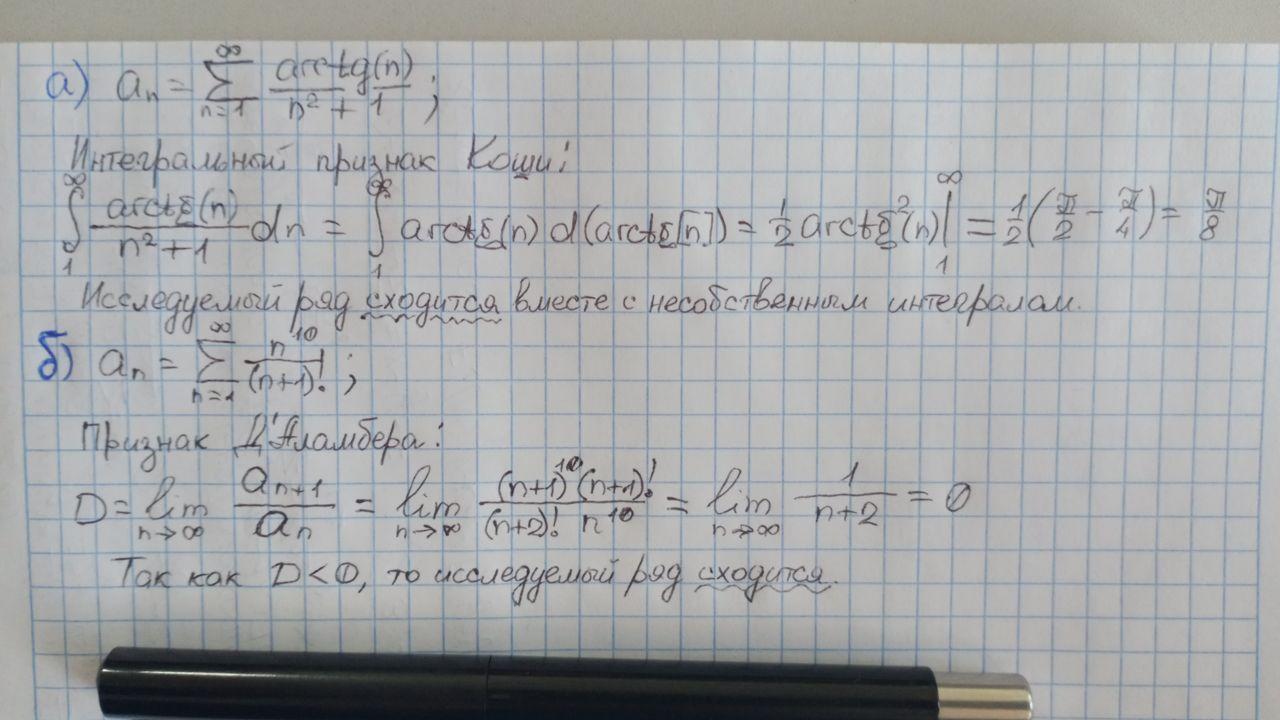 а) aₙ = ∑ₙ₌₁^∞ arctg(n)/(n² + 1) ;
Интегральный признак Коши:
∫₁^∞ arctg(n)/(n²+1) dn = ∫₁^∞ arctg(n) d(arctg[n]) = 1/2 arctg²(n)|₁^∞ = 1/2(π/2 - π/4) = π/8
Исследуемый ряд сходится вместе с несобственным интегралом.
б) aₙ = ∑ₙ₌₁^∞ n¹⁰/(n+1)! ;
Признак Д'Аламбера:
D = lim_{n→∞} aₙ₊₁/aₙ = lim_{n→∞} (n+1)¹⁰(n+1)!/((n+2)! n¹⁰) = lim_{n→∞} 1/(n+2) = 0
Так как D<0, то исследуемый ряд сходится.